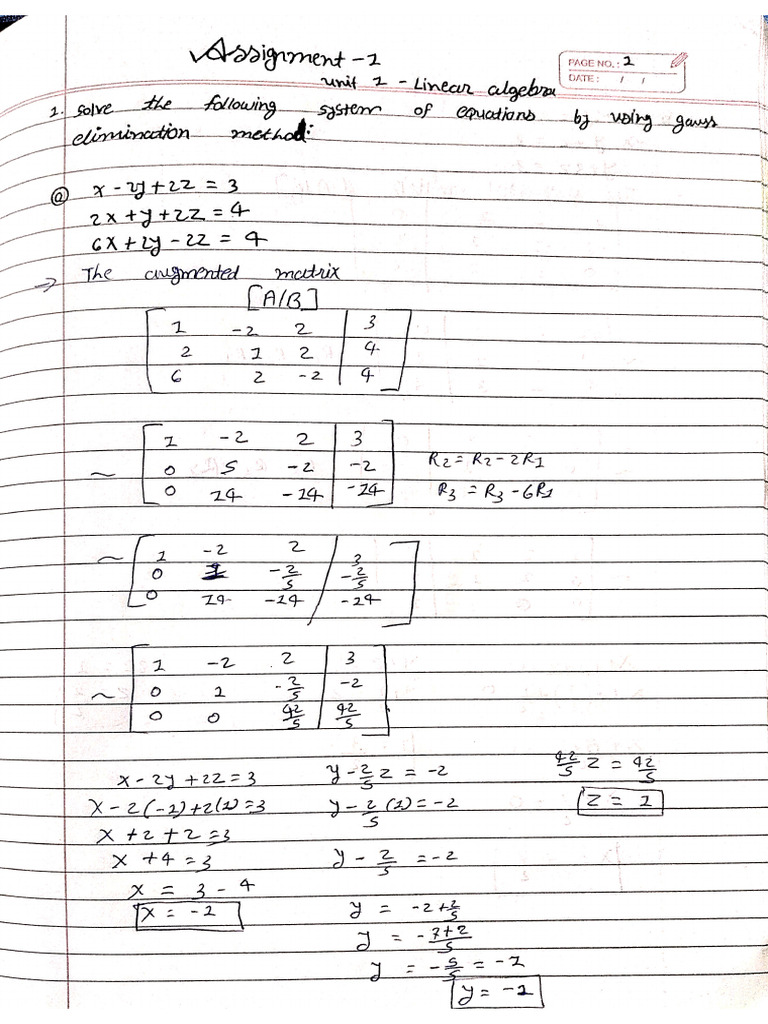 Assignment-1
PAGE NO.: 1
DATE: / /
unit 1 - Linear algebra
1. solve the following system of equations by using gauss
elimination method:
ⓐ x - 2y + 2z = 3
2x + y + 2z = 4
6x + 2y - 2z = 4
→ The augmented matrix
[A/B]
[ 1 -2 2 | 3 ]
[ 2 1 2 | 4 ]
[ 6 2 -2 | 4 ]
[ 1 -2 2 | 3 ]
~ [ 0 5 -2 | -2 ] R2 = R2 - 2R1
[ 0 14 -14 | -14 ] R3 = R3 - 6R1
~ [ 1 -2 2 / 3 ]
[ 0 1 -2/5 / -2/5 ]
[ 0 14 -14 / -14 ]
[ 1 -2 2 | 3 ]
~ [ 0 1 -2/5 | -2 ]
[ 0 0 42/5 | 42/5 ]
x - 2y + 2z = 3 y - 2/5 z = -2 42/5 z = 42/5
x - 2(-1) + 2(1) = 3 y - 2/5 (1) = -2 z = 1
x + 2 + 2 = 3
x + 4 = 3 y - 2/5 = -2
x = 3 - 4
x = -1 y = -2 + 2/5
y = -7+2/5
y = -5/5 = -1
y = -1